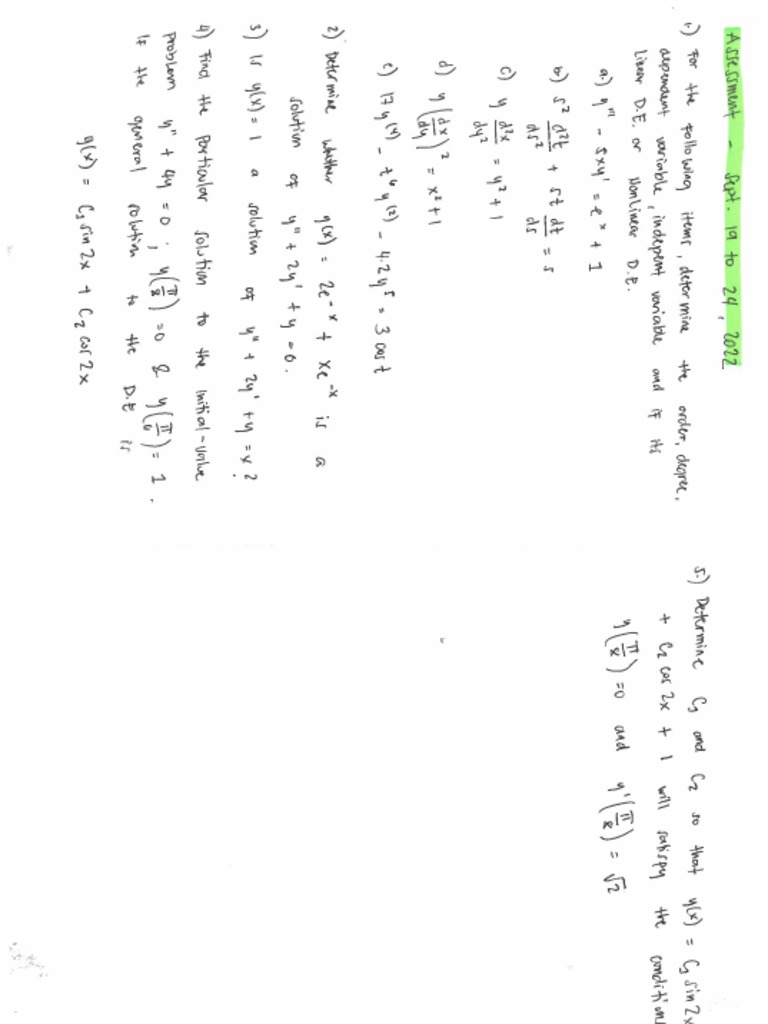 Assessment - Sept. 19 to 24, 2022
1.) For the following items, determine the order, degree,
dependent variable, indepent variable and if its
Linear D.E. or Nonlinear D.E.
a.) y''' - 5xy' = e^x + 1
b) s² d²t/ds² + st dt/ds = s
c) y d²x/dy² = y² + 1
d) y (dx/dy)² = x² + 1
e) 17y⁽⁴⁾ - t⁶y⁽²⁾ - 4.2y⁵ = 3 cos t
2) Determine whether y(x) = 2e^-x + xe^-x is a
solution of y'' + 2y' + y = 0.
3) Is y(x) = 1 a solution of y'' + 2y' + y = x?
4) Find the particular solution to the initial-value
problem y'' + 4y = 0 ; y(π/8) = 0 & y(π/6) = 1.
If the general solution to the D.E is
y(x) = C₁ sin 2x + C₂ cos 2x
5.) Determine C₁ and C₂ so that y(x) = C₁ sin 2x
+ C₂ cos 2x + 1 will satisfy the condition
y(π/8) = 0 and y'(π/8) = √2